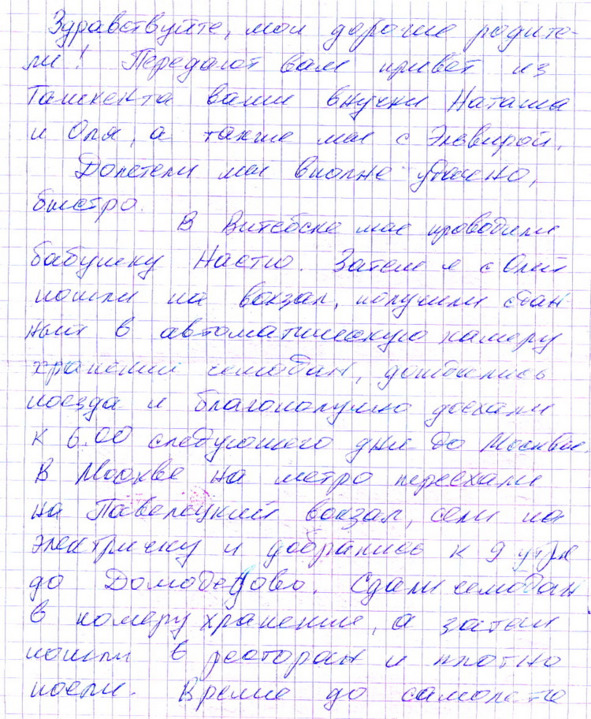 Здравствуйте, мои дорогие родите-
ли! Передают вам привет из
Ташкента ваши внучки Наташа
и Оля, а также мы с Эльвирой.
Долетели мы вполне удачно,
быстро.
В Витебске мы проводили
бабушку Настю. Затем я с Олей
пошли на вокзал, получили сдан
ный в автоматическую камеру
хранений чемодан, дождались
поезда и благополучно доехали
к 6.00 следующего дня до Москвы.
В Москве на метро переехали
на Павелецкий вокзал, сели на
электричку и добрались к 9 утра
до Домодедово. Сдали чемодан
в камеру хранения, а затем
пошли в ресторан и плотно
поели. Время до самолета